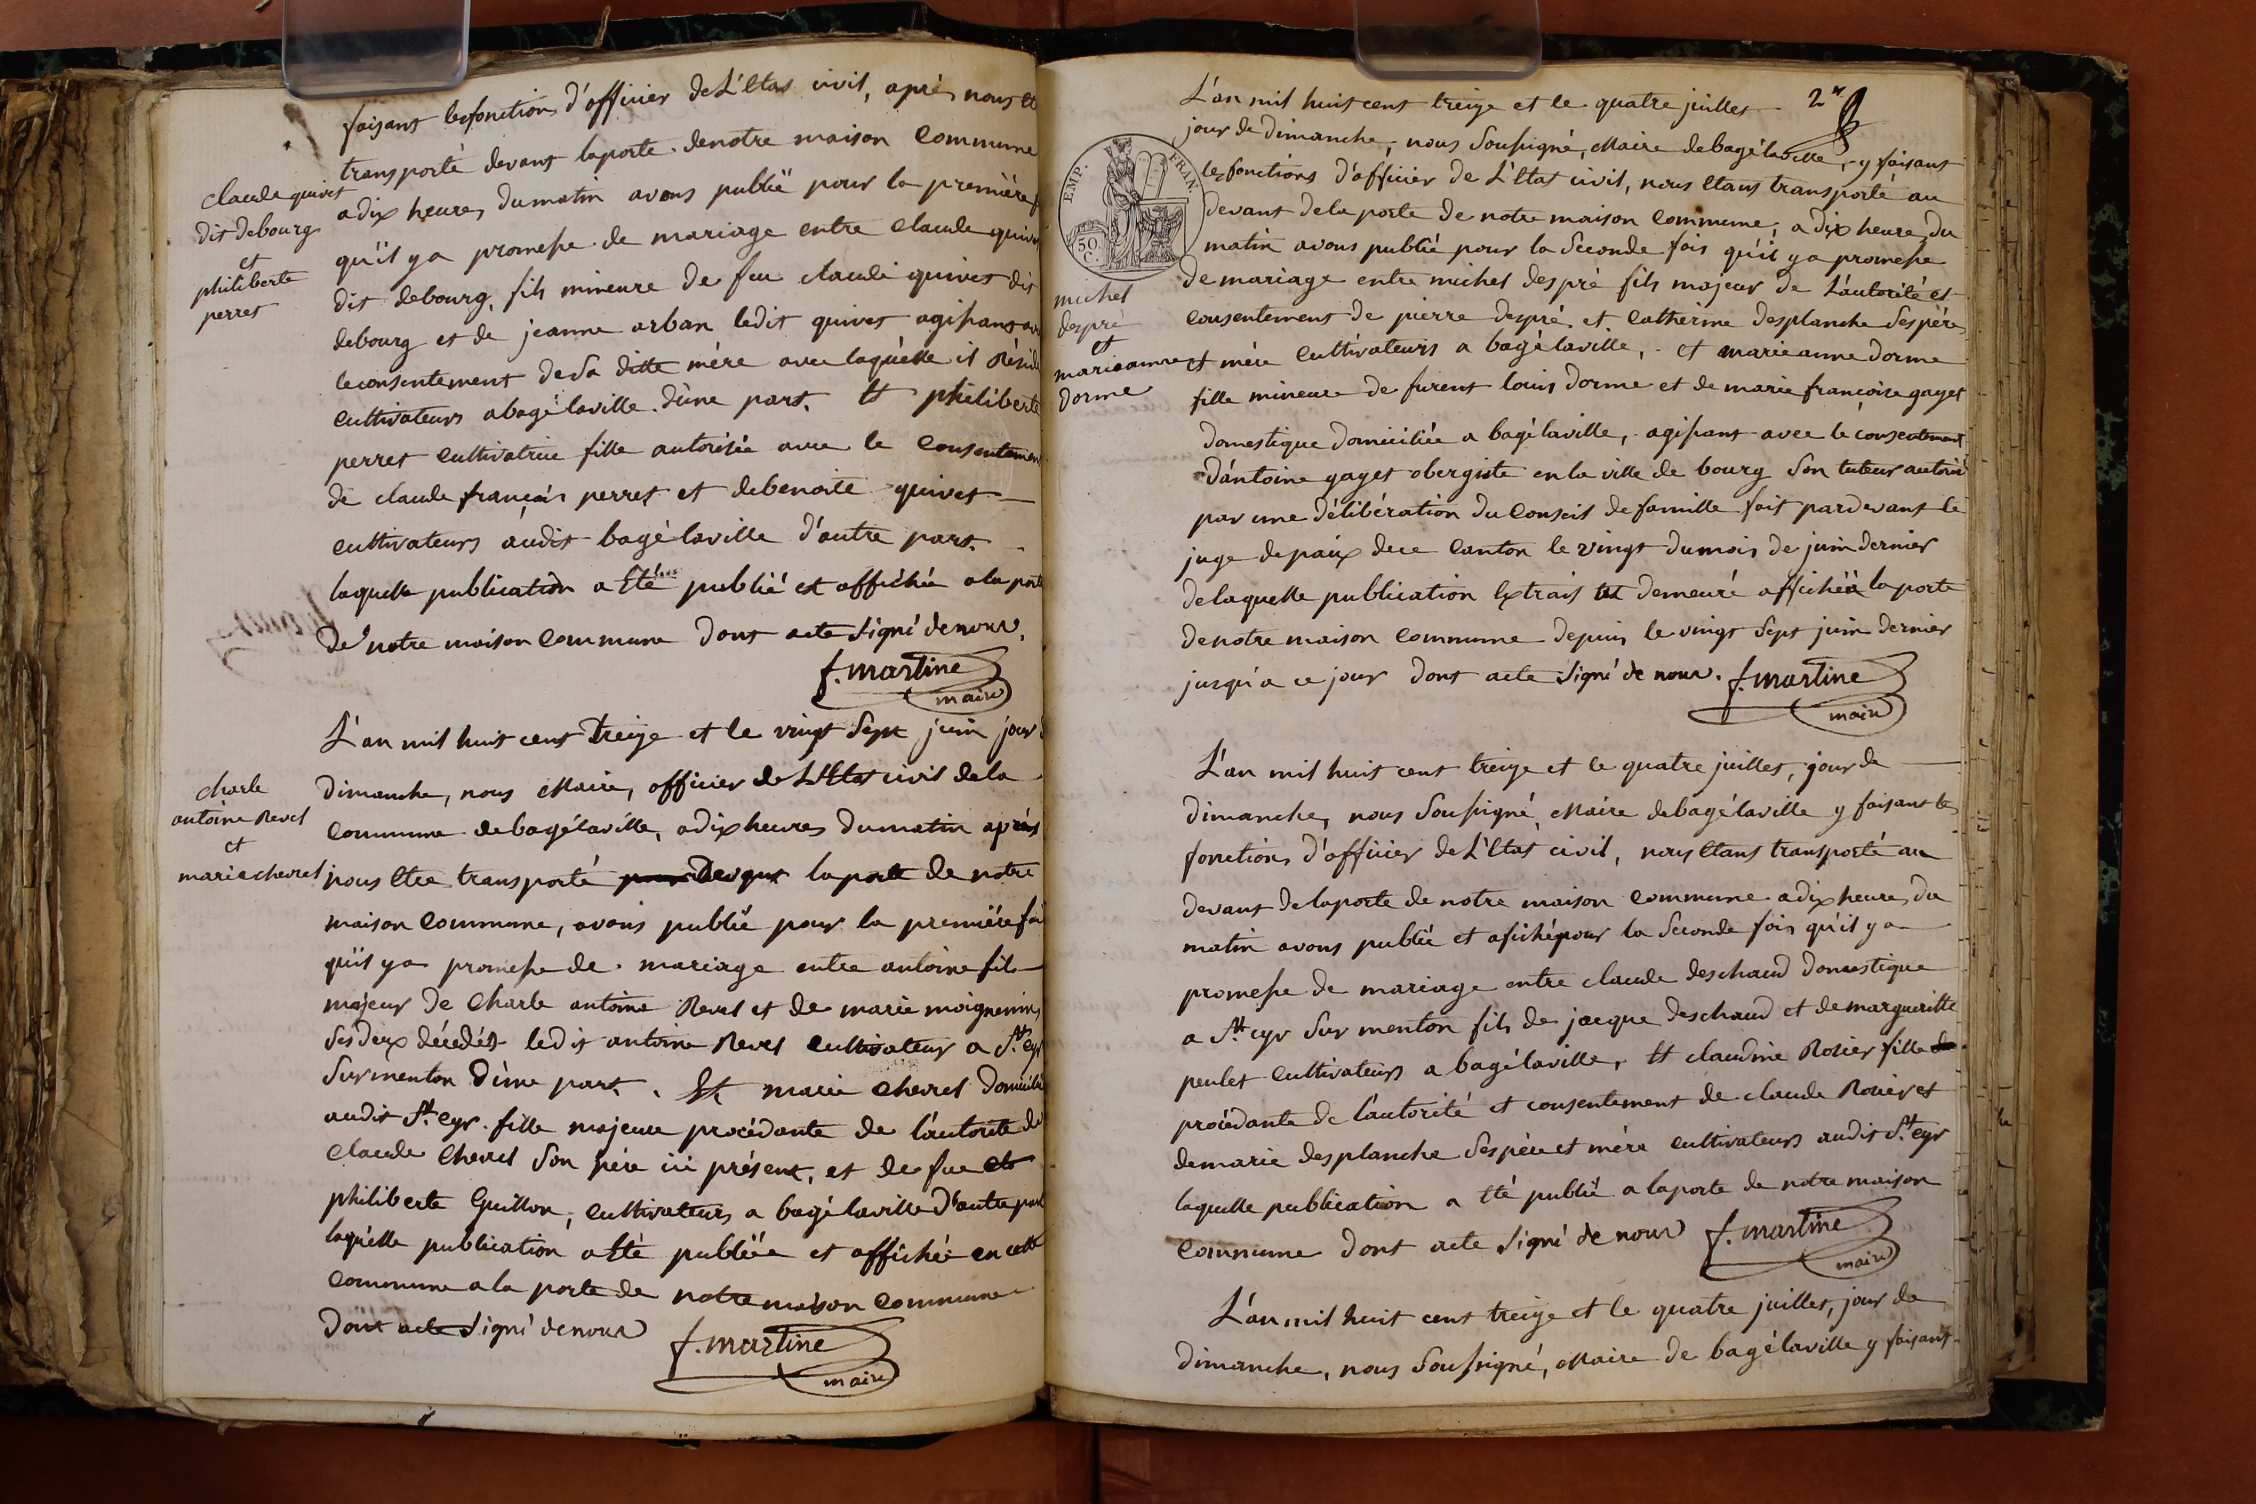 faisant les fonctions d'officier de L'Etat civil, aprés nous
transporté devant laporte denotre maison Commune
adix heures dumatin avons publié pour la premiére
qu'il ya promesse de mariage entre claude quivet
dit debourg, fils mineure de feu claude quivet dit
debourg et de jeanne arban ledit quivet agissant
leconsentement desa ditte mére avec laquelle il Réside
cultivateurs abagélaville. d'une part. Et philiberte
perret cultivatrice fille autorisée avec le Consentement
de claude françois perret et debenoite quivet
cultivateurs audit bagélaville d'autre part.
laquelle publication a Eté publié et affichée alaporte
de notre maison commune dont acte signé denous.
f. martine
maire
claude quivet
dit debourg
et
philiberte
perret
L'an mil huit cent treize et le vingt sept juin jour
dimanche, nous Maire, officier de L'Etat civil dela
Commune debagélaville, adix heures dumatin aprés
nous Etre transporté devant laporte de notre
maison Commune, avons publié pour la premiére fois
qu'il ya promesse de mariage entre antoine fils
majeur de Charle antoine Revel et de marie moignenin,
ses deux décédés ledit antoine Revel cultivateur a St. cyr
surmenton d'une part. Et marie chevret Domicilié
audit St. cyr. fille majeure procédante de l'autorité de
claude Chevret son pére ici présent, et de feue
philiberte Guillon, cultivateurs a bagélaville d'autre part
laquelle publication a Eté publiée et affichée en cette
Commune ala porte de notre maison Commune
dont acte signé denous
f. martine
maire
charle
antoine Revel
et
marie chevret
2e
L'an mil huit cent treize et le quatre juillet
jour de dimanche, nous soussigné, Maire debagélaville, y faisant
les fonctions d'officier de L'Etat civil, nous Etans transporté au
devant dela porte de notre maison Commune, adix heures du
matin avons publié pour la seconde fois qu'il ya promesse
de mariage entre michel despré fils majeur de L'autorité et
consentement de pierre despré et Catherine desplanche ses pére
et mére Cultivateurs a bagélaville, et marieanne dorme
fille mineure de furent louis dorme et de marie françoise gayet
domestique domiciliée a bagélaville, agissant avec le consentement
d'antoine gayet obergiste enla ville de bourg son tuteur autorisé
par une délibération du conseil de famille fait pardevant le
juge depaix dece Canton le vingt dumois de juin dernier
delaquelle publication Extrait est demeuré affichéà laporte
denotre maison Commune depuis le vingt sept juin dernier
jusqu'a ce jour dont acte signé de nous. f. martine
maire
EMP. FRAN.
50 C.
michel
despré
et
marieanne
dorme
L'an mil huit cent treize et le quatre juillet, jour de
dimanche, nous soussigné, Maire debagélaville y faisant les
fonctions d'officier de L'Etat civil, nous Etans transporté au
devant delaporte de notre maison Commune adix heures du
matin avons publié et afichépour la seconde fois qu'il ya
promesse de mariage entre claude deschaud domestique
a St. cyr sur menton fils de jacque deschaud et demarguerite
peulet Cultivateurs a bagélaville, Et claudine Rozier fille
procédante de l'autorité et consentement de claude Rozier et
demarie desplanche ses pére et mére cultivateurs audit St. cyr
laquelle publication a Eté publié a laporte de notre maison
Commune dont acte signé de nous f. martine
maire
L'an mil huit cent treize et le quatre juillet, jour de
dimanche, nous soussigné, Maire de bagélaville y faisant